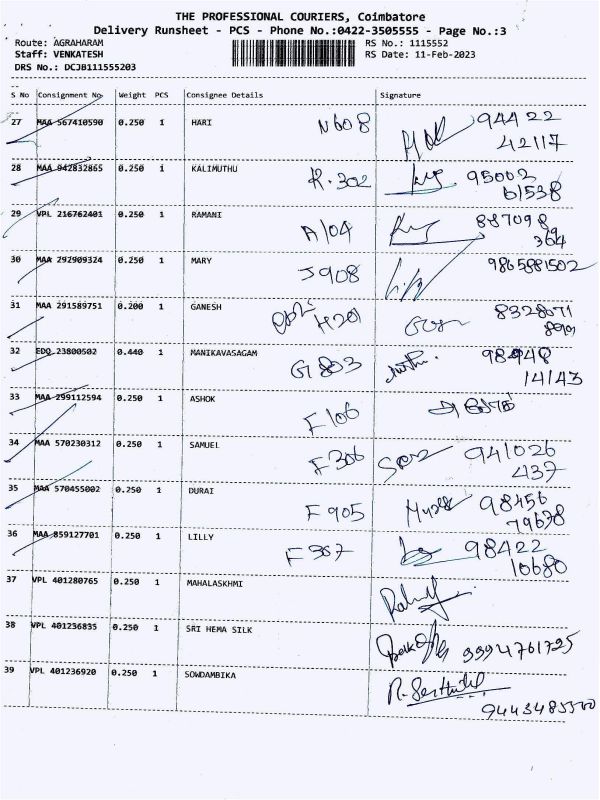 THE PROFESSIONAL COURIERS, Coimbatore
Delivery Runsheet - PCS - Phone No.:0422-3505555 - Page No.:3
Route: AGRAHARAM
RS No.: 1115552
Staff: VENKATESH
RS Date: 11-Feb-2023
DRS No.: DCJB111555203
S No Consignment No Weight PCS Consignee Details Signature
27 MAA 567410590 0.250 1 HARI N608 94422
42117
28 MAA 942832865 0.250 1 KALIMUTHU K.302 95002
61538
29 VPL 216762401 0.250 1 RAMANI A104 887098
364
30 MAA 292909324 0.250 1 MARY J908 9865881502
31 MAA 291589751 0.200 1 GANESH H201 8328071
32 EDQ 23800502 0.440 1 MANIKAVASAGAM G803 98948
14143
33 MAA 299112594 0.250 1 ASHOK F106
34 MAA 570230312 0.250 1 SAMUEL F306 941026
437
35 MAA 570455002 0.250 1 DURAI F905 98456
79678
36 MAA 859127701 0.250 1 LILLY F307 98422
10680
37 VPL 401280765 0.250 1 MAHALASKHMI
38 VPL 401236835 0.250 1 SRI HEMA SILK 9994761725
39 VPL 401236920 0.250 1 SOWDAMBIKA R. Senthil
9443485500